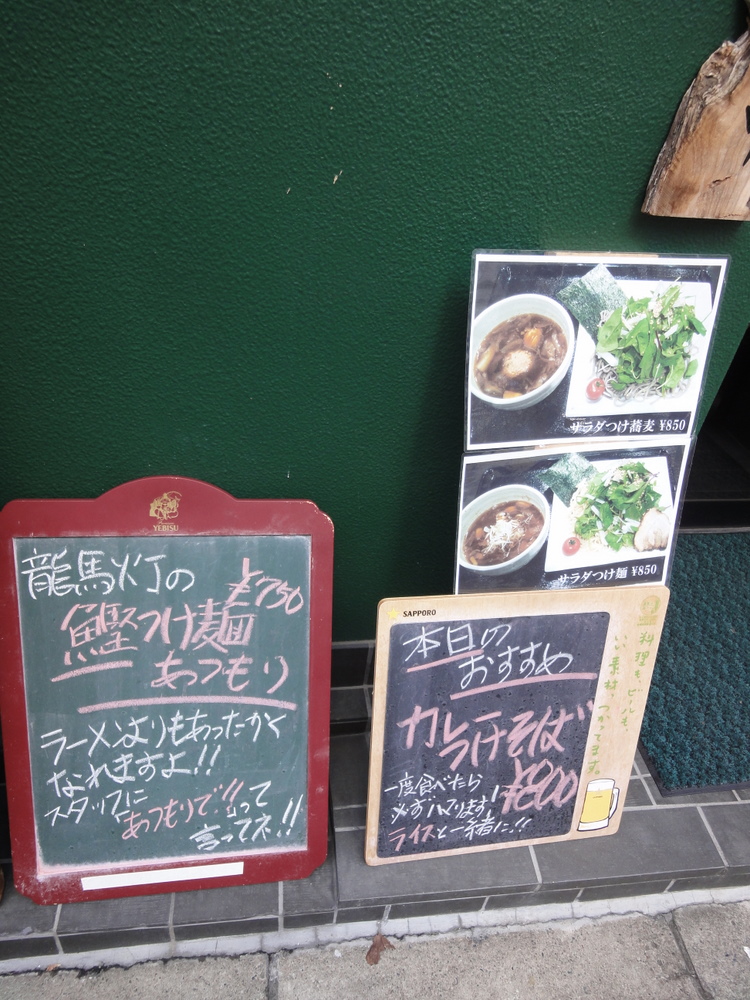 YEBISU
龍馬灯の
¥750
鰹つけ麺
あつもり
ラーメンよりもあったかく
なれますよ!!
スタッフに
あつもりで!!って
言ってネ!!
サラダつけ蕎麦 ¥850
サラダつけ麺 ¥850
SAPPORO
本日の
おすすめ
カレー
つけそば
¥800
一度食べたら
必ずハマります!
ライスと一緒に!!
料理も、ビールも、
いい素材、つかってます。